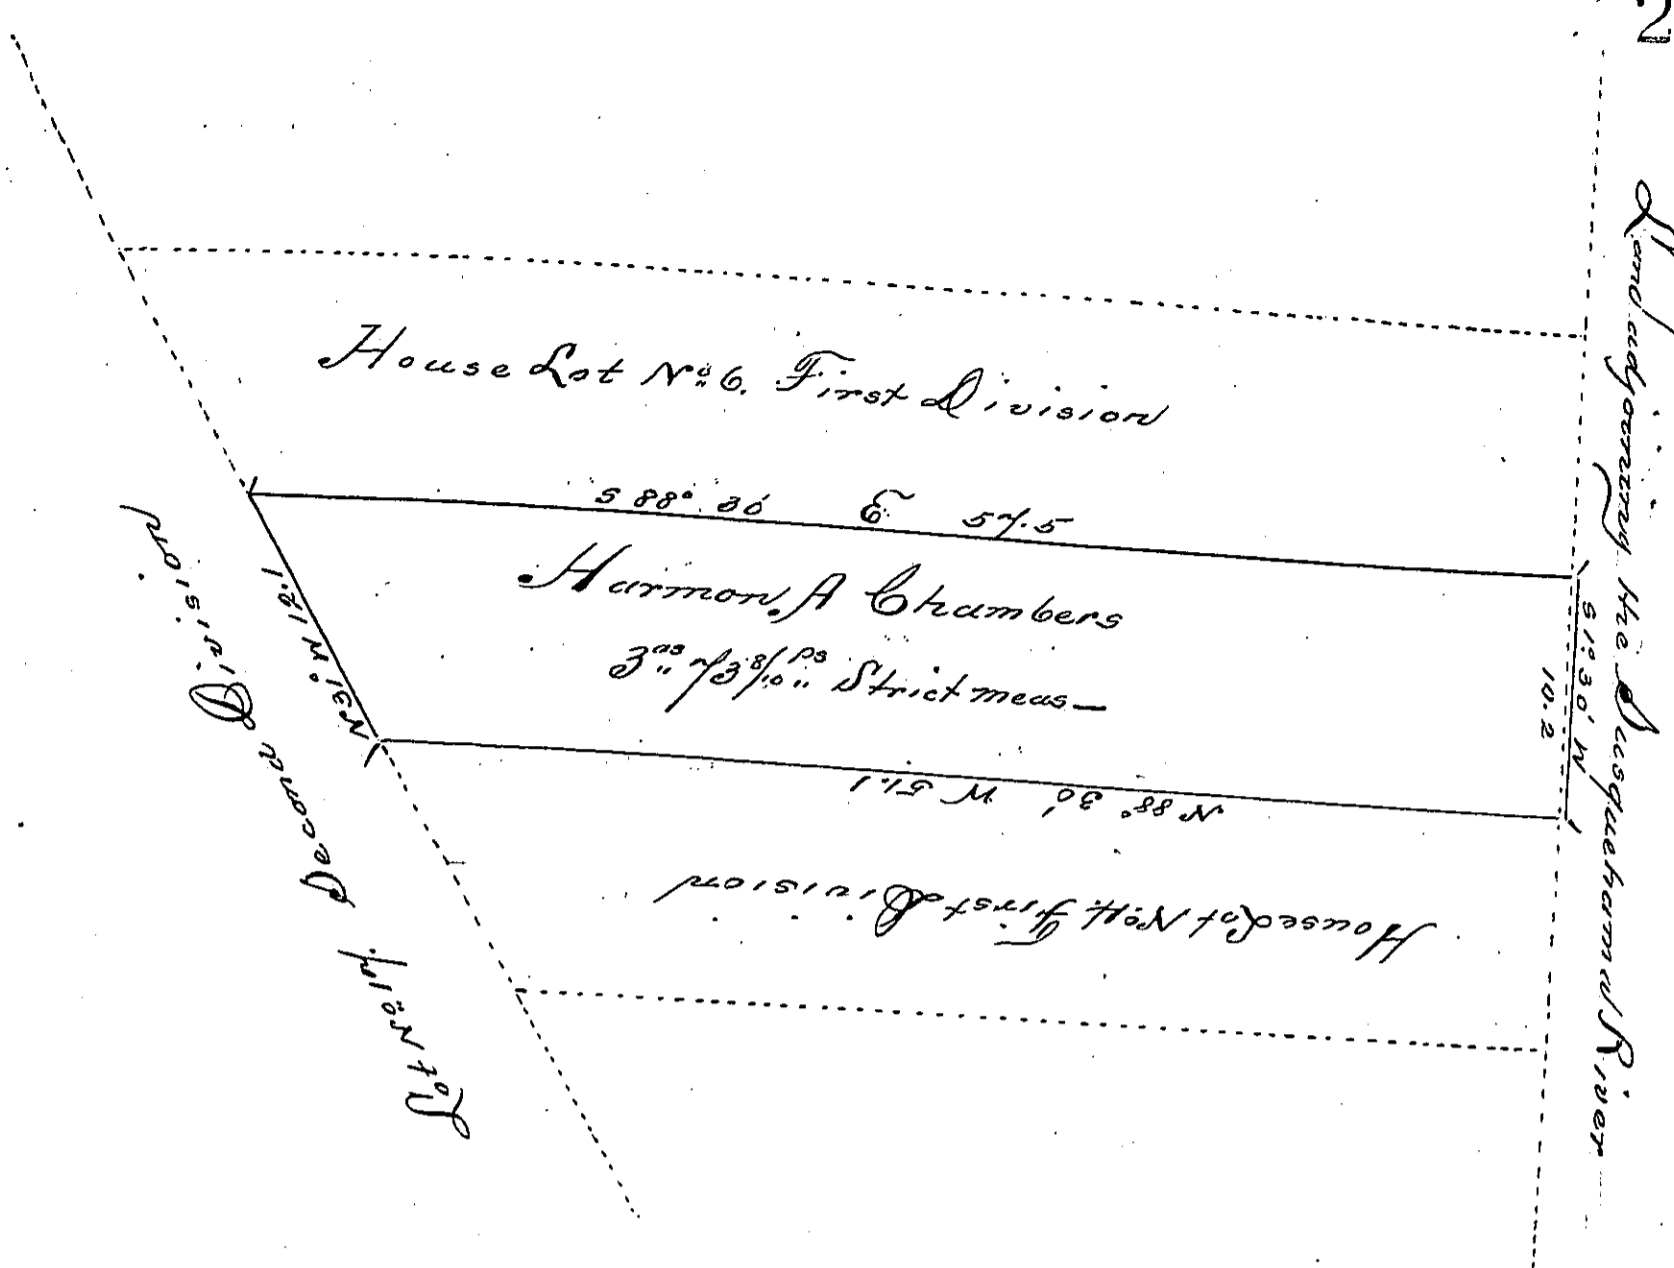 2
Land adjoining the Susquehanna River
House Lot No. 6. First Division
S 88° 30' E 57.5
Harmon A Chambers
3 as 73 8/10 ps Strict meas—
S 1° 30' W
10.2
N 31° W 12.1
N 88° 30' W 51.1
House Lot No. 4. First Division
Lot No. 17. Second Division